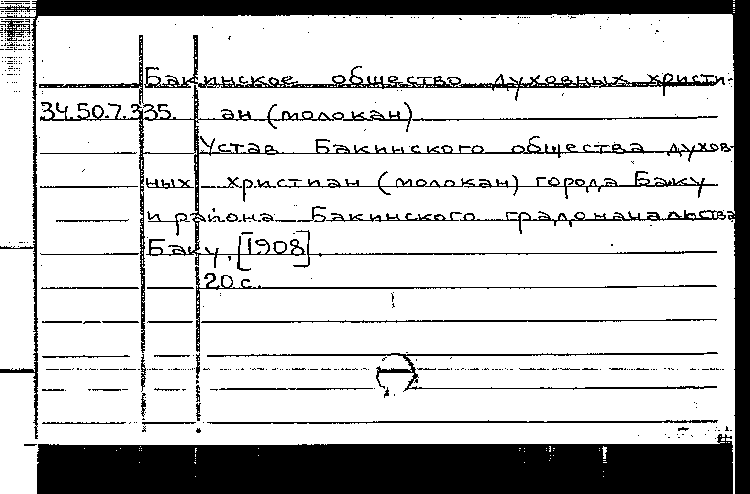 Бакинское общество духовных христи-
34.50.7.335. ан (молокан)
Устав Бакинского общества духов-
ных христиан (молокан) города Баку
и района Бакинского градоначальства
Баку, [1908].
20 с.